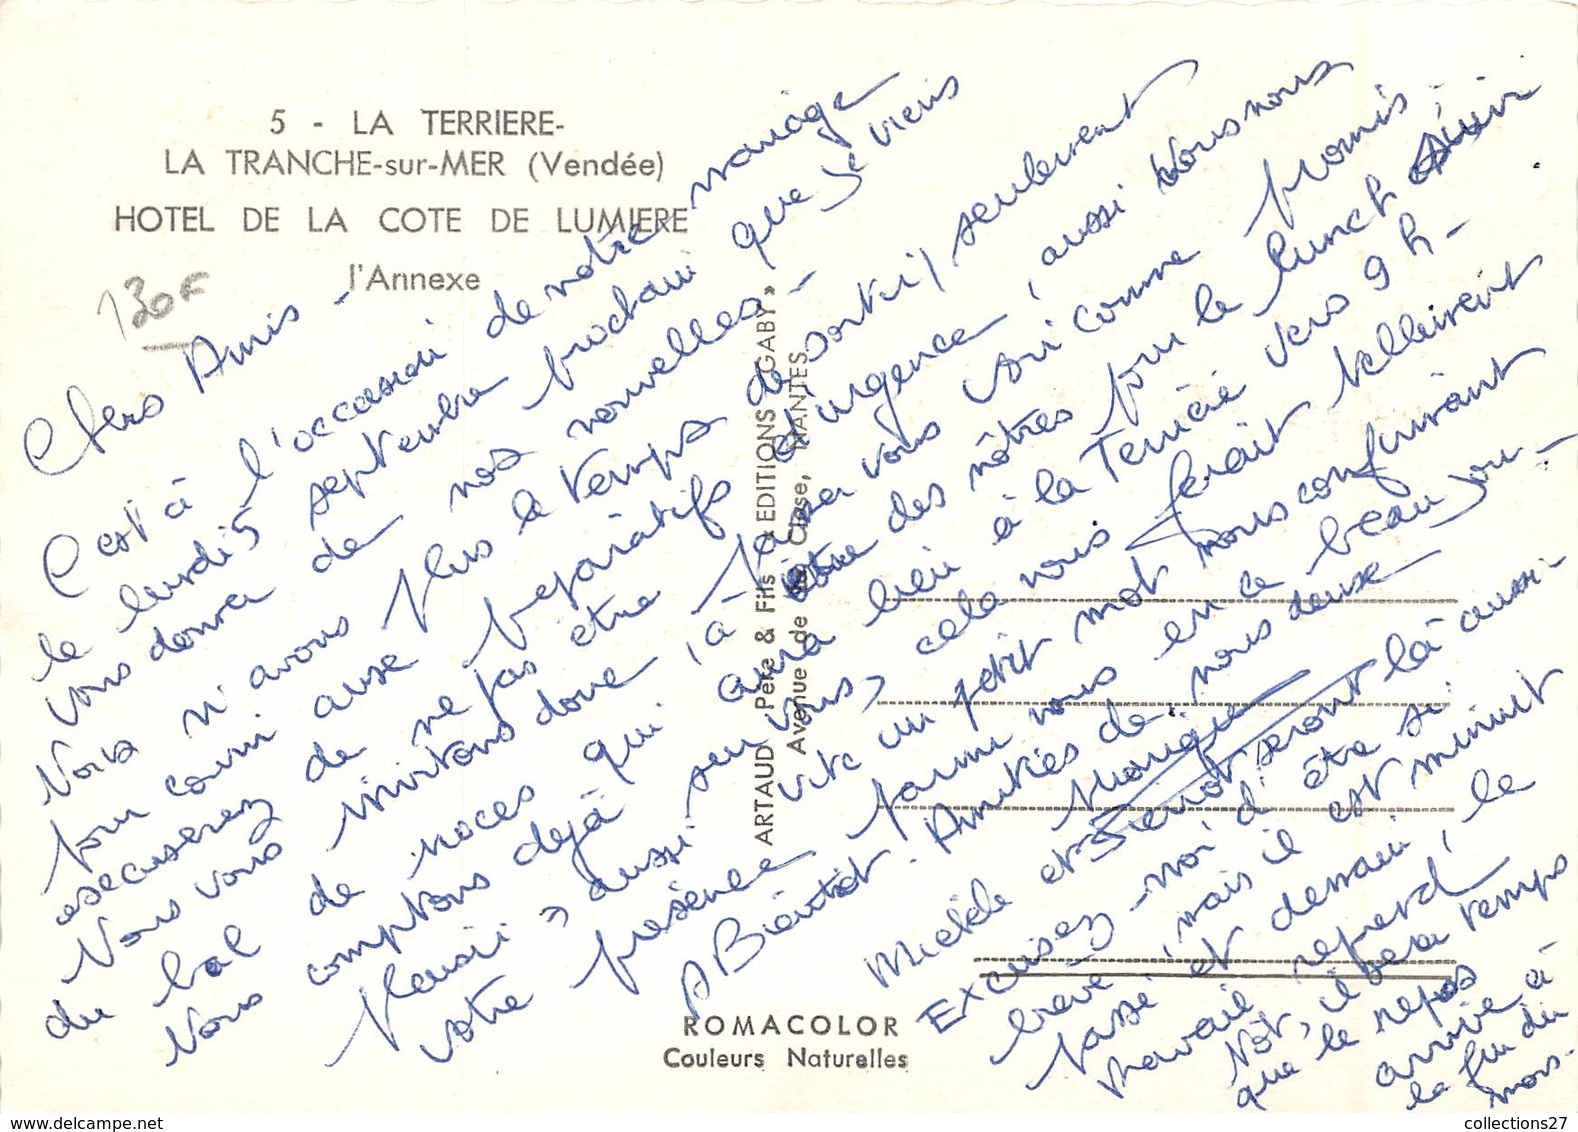 5 - LA TERRIERE-
LA TRANCHE-sur-MER (Vendée)
HOTEL DE LA COTE DE LUMIERE
l'Annexe
130F
Chers Amis -
C'est à l'occasion de notre mariage
le lundi 5 septembre prochain que je viens
vous donner de nos nouvelles -
Nous n'avons plus le temps de sortir, seulement
pour courir aux préparatifs d'urgence, aussi vous nous
excuserez de ne pas être
Nous vous invitons donc, à passer vous voir comme promis -
du bal de noces qui aura lieu à la Terrière vers 9 h -
Nous comptons déjà sur vous, cela nous ferait tellement
plaisir, aussi vite un petit mot nous confirmant
votre présence parmi nous en ce beau jour -
A Bientôt - Amitiés de nous deux
Monique
Michèle et seront là aussi -
Excusez-moi d'être si
brève, mais il est minuit
passé et demain, le
travail reprend,
Vôt, il sera temps
que le repos
arrive à
la fin du
mois -
ARTAUD Père & Fils « EDITIONS GABY »
Avenue de la Close, NANTES
ROMACOLOR
Couleurs Naturelles
www.delcampe.net
collections27